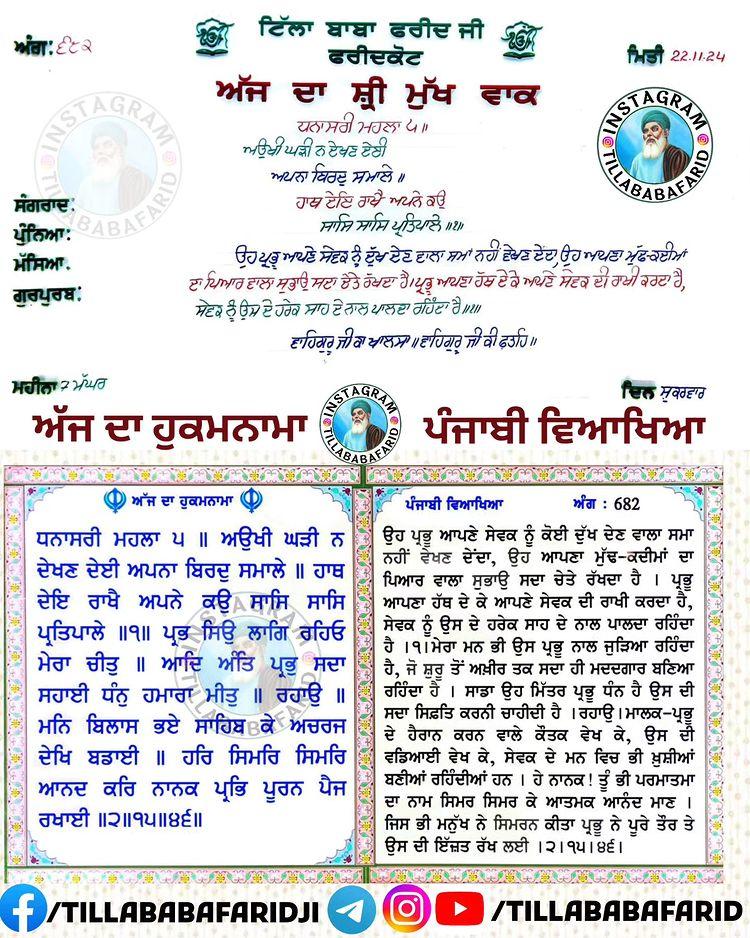 ਅੰਗ: ੬੮੨
ਟਿੱਲਾ ਬਾਬਾ ਫਰੀਦ ਜੀ
ਫਰੀਦਕੋਟ
ਮਿਤੀ 22.11.24
ਅੱਜ ਦਾ ਸ਼੍ਰੀ ਮੁੱਖ ਵਾਕ
INSTAGRAM
TILLABABAFARID
INSTAGRAM
TILLABABAFARID
ਧਨਾਸਰੀ ਮਹਲਾ ੫॥
ਅਉਖੀ ਘੜੀ ਨ ਦੇਖਣ ਦੇਈ
ਅਪਨਾ ਬਿਰਦੁ ਸਮਾਲੇ ॥
ਹਾਥ ਦੇਇ ਰਾਖੈ ਅਪਨੇ ਕਉ
ਸਾਸਿ ਸਾਸਿ ਪ੍ਰਤਿਪਾਲੇ ॥੧॥
ਸੰਗਰਾਦ:
ਪੁੰਨਿਆ:
ਮੱਸਿਆ.
ਗੁਰਪੁਰਬ:
ਉਹ ਪ੍ਰਭੂ ਆਪਣੇ ਸੇਵਕ ਨੂੰ ਦੁੱਖ ਦੇਣ ਵਾਲਾ ਸਮਾਂ ਨਹੀਂ ਵੇਖਣ ਦੇਂਦਾ, ਉਹ ਆਪਣਾ ਮੁੱਢ-ਕਦੀਮਾਂ
ਦਾ ਪਿਆਰ ਵਾਲਾ ਸੁਭਾਉ ਸਦਾ ਚੇਤੇ ਰੱਖਦਾ ਹੈ। ਪ੍ਰਭੂ ਆਪਣਾ ਹੱਥ ਦੇ ਕੇ ਆਪਣੇ ਸੇਵਕ ਦੀ ਰਾਖੀ ਕਰਦਾ ਹੈ,
ਸੇਵਕ ਨੂੰ ਉਸ ਦੇ ਹਰੇਕ ਸਾਹ ਦੇ ਨਾਲ ਪਾਲਦਾ ਰਹਿੰਦਾ ਹੈ ॥੧॥
ਵਾਹਿਗੁਰੂ ਜੀ ਕਾ ਖਾਲਸਾ॥ ਵਾਹਿਗੁਰੂ ਜੀ ਕੀ ਫਤਹਿ॥
ਮਹੀਨਾ ੭ ਮੱਘਰ
ਦਿਨ ਸ਼ੁਕਰਵਾਰ
ਅੱਜ ਦਾ ਹੁਕਮਨਾਮਾ
INSTAGRAM
TILLABABAFARID
ਪੰਜਾਬੀ ਵਿਆਖਿਆ
ਅੱਜ ਦਾ ਹੁਕਮਨਾਮਾ
ਧਨਾਸਰੀ ਮਹਲਾ ੫ ॥ ਅਉਖੀ ਘੜੀ ਨ
ਦੇਖਣ ਦੇਈ ਅਪਨਾ ਬਿਰਦੁ ਸਮਾਲੇ ॥ ਹਾਥ
ਦੇਇ ਰਾਖੈ ਅਪਨੇ ਕਉ ਸਾਸਿ ਸਾਸਿ
ਪ੍ਰਤਿਪਾਲੇ ॥੧॥ ਪ੍ਰਭ ਸਿਉ ਲਾਗਿ ਰਹਿਓ
ਮੇਰਾ ਚੀਤੁ ॥ ਆਦਿ ਅੰਤਿ ਪ੍ਰਭੁ ਸਦਾ
ਸਹਾਈ ਧੰਨੁ ਹਮਾਰਾ ਮੀਤੁ ॥ ਰਹਾਉ ॥
ਮਨਿ ਬਿਲਾਸ ਭਏ ਸਾਹਿਬ ਕੇ ਅਚਰਜ
ਦੇਖਿ ਬਡਾਈ ॥ ਹਰਿ ਸਿਮਰਿ ਸਿਮਰਿ
ਆਨਦ ਕਰਿ ਨਾਨਕ ਪ੍ਰਭਿ ਪੂਰਨ ਪੈਜ
ਰਖਾਈ ॥੨॥੧੫॥੪੬॥
INSTAGRAM
TILLABABAFARID
ਪੰਜਾਬੀ ਵਿਆਖਿਆ ਅੰਗ : 682
ਉਹ ਪ੍ਰਭੂ ਆਪਣੇ ਸੇਵਕ ਨੂੰ ਕੋਈ ਦੁੱਖ ਦੇਣ ਵਾਲਾ ਸਮਾ
ਨਹੀਂ ਵੇਖਣ ਦੇਂਦਾ, ਉਹ ਆਪਣਾ ਮੁੱਢ-ਕਦੀਮਾਂ ਦਾ
ਪਿਆਰ ਵਾਲਾ ਸੁਭਾਉ ਸਦਾ ਚੇਤੇ ਰੱਖਦਾ ਹੈ । ਪ੍ਰਭੂ
ਆਪਣਾ ਹੱਥ ਦੇ ਕੇ ਆਪਣੇ ਸੇਵਕ ਦੀ ਰਾਖੀ ਕਰਦਾ ਹੈ,
ਸੇਵਕ ਨੂੰ ਉਸ ਦੇ ਹਰੇਕ ਸਾਹ ਦੇ ਨਾਲ ਪਾਲਦਾ ਰਹਿੰਦਾ
ਹੈ ।੧।ਮੇਰਾ ਮਨ ਭੀ ਉਸ ਪ੍ਰਭੂ ਨਾਲ ਜੁੜਿਆ ਰਹਿੰਦਾ
ਹੈ, ਜੋ ਸ਼ੁਰੂ ਤੋਂ ਅਖ਼ੀਰ ਤਕ ਸਦਾ ਹੀ ਮਦਦਗਾਰ ਬਣਿਆ
ਰਹਿੰਦਾ ਹੈ । ਸਾਡਾ ਉਹ ਮਿੱਤਰ ਪ੍ਰਭੂ ਧੰਨ ਹੈ ਉਸ ਦੀ
ਸਦਾ ਸਿਫ਼ਤਿ ਕਰਨੀ ਚਾਹੀਦੀ ਹੈ ।ਰਹਾਉ।ਮਾਲਕ-ਪ੍ਰਭੂ
ਦੇ ਹੈਰਾਨ ਕਰਨ ਵਾਲੇ ਕੌਤਕ ਵੇਖ ਕੇ, ਉਸ ਦੀ
ਵਡਿਆਈ ਵੇਖ ਕੇ, ਸੇਵਕ ਦੇ ਮਨ ਵਿਚ ਭੀ ਖ਼ੁਸ਼ੀਆਂ
ਬਣੀਆਂ ਰਹਿੰਦੀਆਂ ਹਨ । ਹੇ ਨਾਨਕ! ਤੂੰ ਭੀ ਪਰਮਾਤਮਾ
ਦਾ ਨਾਮ ਸਿਮਰ ਸਿਮਰ ਕੇ ਆਤਮਕ ਆਨੰਦ ਮਾਣ ।
ਜਿਸ ਭੀ ਮਨੁੱਖ ਨੇ ਸਿਮਰਨ ਕੀਤਾ ਪ੍ਰਭੂ ਨੇ ਪੂਰੇ ਤੌਰ ਤੇ
ਉਸ ਦੀ ਇੱਜ਼ਤ ਰੱਖ ਲਈ ।੨।੧੫।੪੬।
/TILLABABAFARIDJI
/TILLABABAFARID